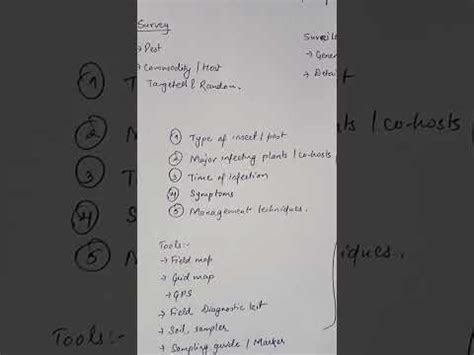 Survey
→ Pest
→ Commodity / Host
Targeted & Random.
① Type of insect / pest
② Major infecting plants / co-hosts
③ Time of infection
④ Symptoms
⑤ Management techniques.
Tools:-
→ Field map
→ Grid map
→ GPS
→ Field Diagnostic kit
→ Soil sampler
→ Sampling guide / Marker